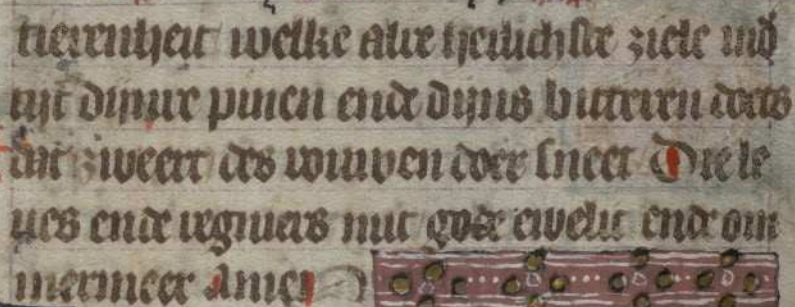 tierenheit welke alre heilichste ziele ind
tijt dijnre pinen ende dijns bitteren doets
dat zweert des rouwen doer sneet Die le
ues ende regniers mit gode ewelic ende om
mermeer Amen